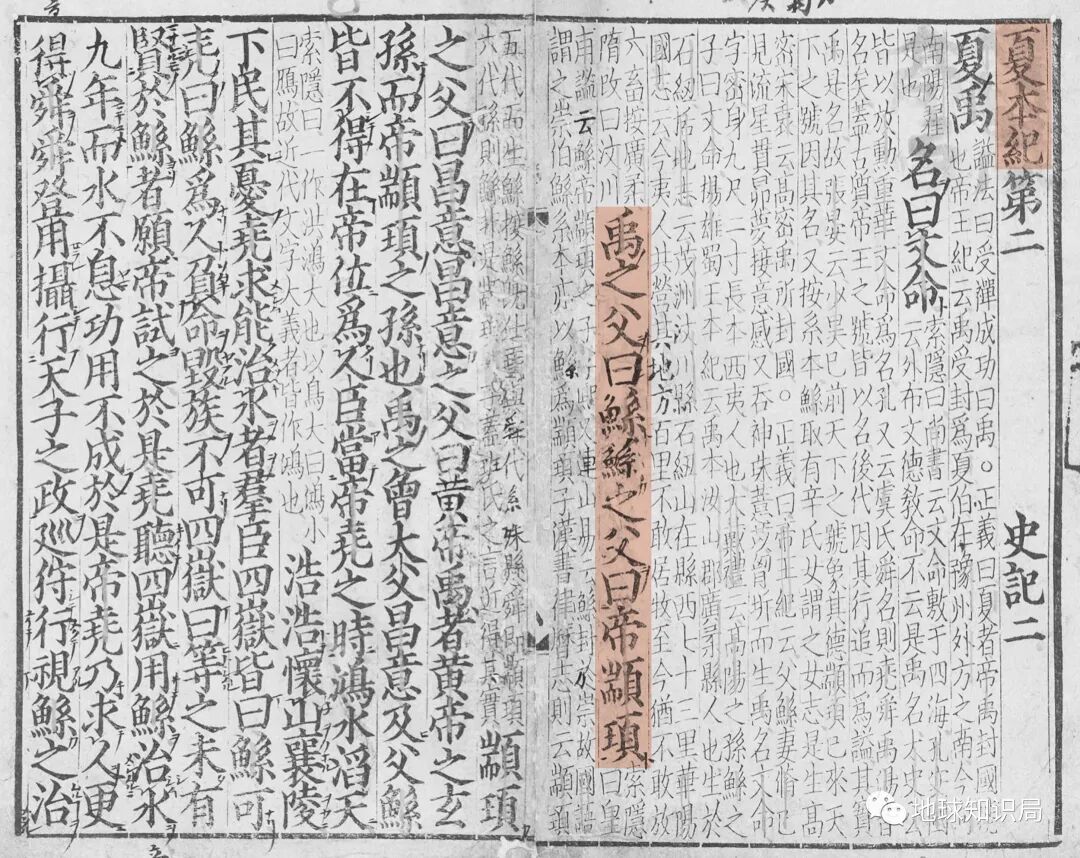 夏本紀第二 史記二
夏禹 謚法曰受禪成功曰禹。正義曰夏者帝禹封國號
也帝王紀云禹受封爲夏伯在豫州外方之南今河
南陽翟
是也
名曰文命 索隱曰尚書云文命敷于四海孔安國
云外布文德教命不云是禹名太史公
皆以放勳重華文命爲名孔又云虞氏舜名則堯舜禹湯皆
名矣蓋古質帝王之號皆以名後代因其行追而爲謚其實
禹是名故張晏云少昊已前天下之號象其德顓頊已來天
下之號因其名又按系本鯀取有辛氏女謂之女志是生高
密宋衷云高密禹所封國。正義曰帝王紀云父鯀妻脩己
見流星貫昴夢接意感又吞神珠薏苡胷坼而生禹名文命
字密身九尺二寸長本西夷人也大戴禮云高陽之孫鯀之
子曰文命揚雄蜀王本紀云禹本汶山郡廣柔縣人也生於
石紐括地志云茂洲汶川縣石紐山在縣西七十三里華陽
國志云今夷人共營其地方百里不敢居牧至今猶不敢放
六畜按廣柔
隋改曰汶川
禹之父曰鯀鯀之父曰帝顓頊 索隱
曰皇
甫謐云鯀帝顓頊之子字熙又連山易云鯀封於崇故國語
謂之崇伯鯀系本亦以鯀爲顓頊子漢書律曆志則云顓頊
五代而生鯀按鯀既仕堯與舜代系殊縣舜即顓頊
六代孫則鯀非是顓頊之子蓋班氏之言近得其實
顓頊
之父曰昌意昌意之父曰黃帝禹者黃帝之玄
孫而帝顓頊之孫也禹之曾大父昌意及父鯀
皆不得在帝位爲人臣當帝堯之時鴻水滔天
索隱曰一作洪鴻大也以鳥大曰鴻小
曰鴈故近代文字大義者皆作鴻也
浩浩懷山襄陵
下民其憂堯求能治水者羣臣四嶽皆曰鯀可
堯曰鯀爲人負命毀族不可四嶽曰等之未有
賢於鯀者願帝試之於是堯聽四嶽用鯀治水
九年而水不息功用不成於是帝堯乃求人更
得舜舜登用攝行天子之政巡狩行視鯀之治
地球知识局